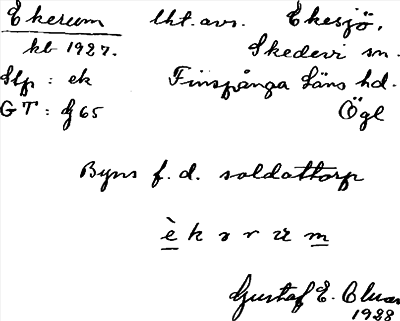 Ekerum lht. avs. Ekesjö,
kb 1927. Skedevi sn.
Slp : ek Finspånga Läns hd.
GT : g 65 Ögl
Byns f. d. soldattorp
è k ə r ʊ m
Gustaf E.
1928